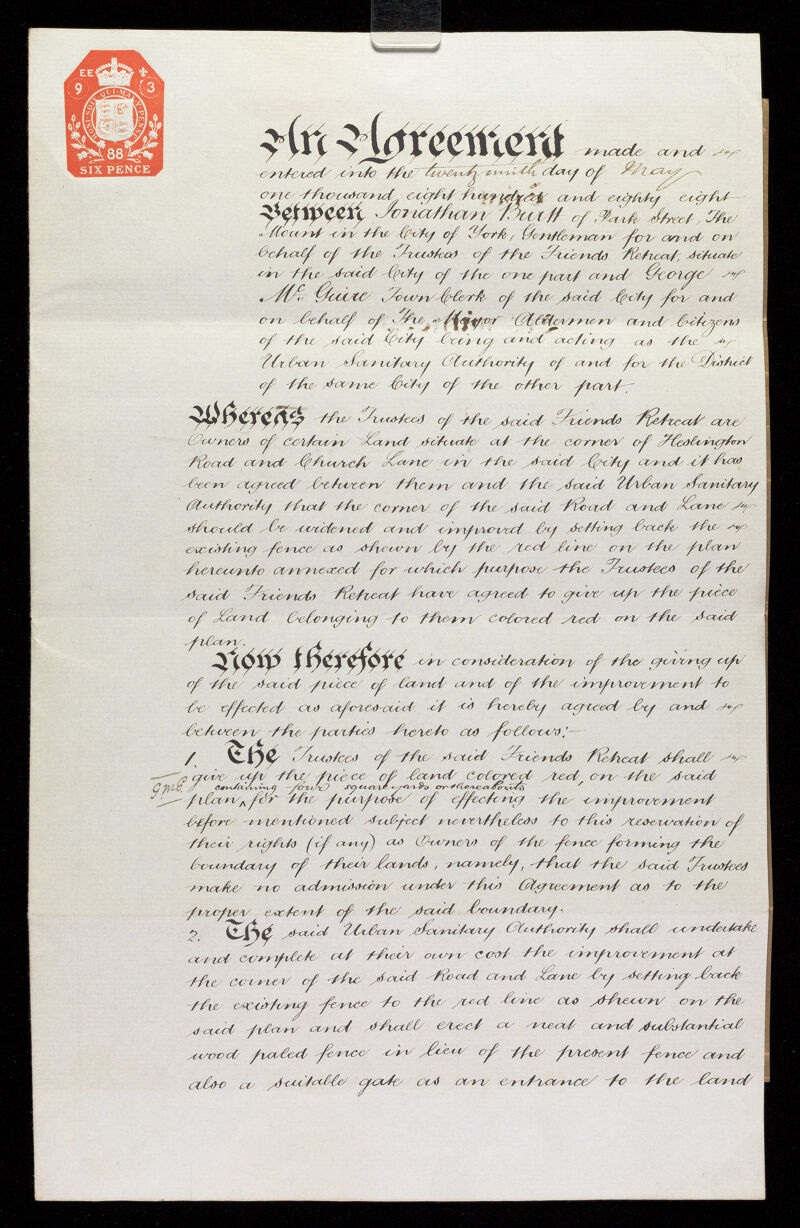 EE
9 3
HONI·SOIT·QUI·MAL·Y·PENSE
88
SIX PENCE
An Agreement made and
entered into the twenty ninth day of May
one thousand eight hundred and eighty eight
Between Jonathan Burtt of Park Street, The
Mount in the City of York, Gentleman for and on
behalf of the Trustees of the Friends Retreat, situate
in the said City of the one part and George
Mc. Guire Town Clerk of the said City for and
on behalf of The Mayor Aldermen and Citizens
of the said City being and acting as the
Urban Sanitary Authority of and for the District
of the same City of the other part.
Whereas the Trustees of the said Friends Retreat are
Owners of certain Land situate at the corner of Heslington
Road and Church Lane in the said City and it has
been agreed between them and the said Urban Sanitary
Authority that the corner of the said Road and Lane
should be widened and improved by setting back the
existing fence as shewn by the red line on the plan
hereunto annexed for which purpose the Trustees of the
said Friends Retreat have agreed to give up the piece
of Land belonging to them colored red on the said
plan.
Now therefore in consideration of the giving up
of the said piece of land and of the improvement to
be effected as aforesaid it is hereby agreed by and
between the parties hereto as follows:—
1. The Trustees of the said Friends Retreat shall
give up the piece of land colored red, on the said
containing four square yards or thereabouts
plan, for the purpose of effecting the improvement
before mentioned subject nevertheless to this reservation of
their rights (if any) as Owners of the fence forming the
boundary of their lands, namely, that the said Trustees
make no admission under this Agreement as to the
proper extent of the said boundary.
2. The said Urban Sanitary Authority shall undertake
and complete at their own cost the improvement at
the corner of the said Road and Lane by setting back
the existing fence to the red line as shewn on the
said plan and shall erect a neat and substantial
wood paled fence in lieu of the present fence and
also a suitable gate as an entrance to the land